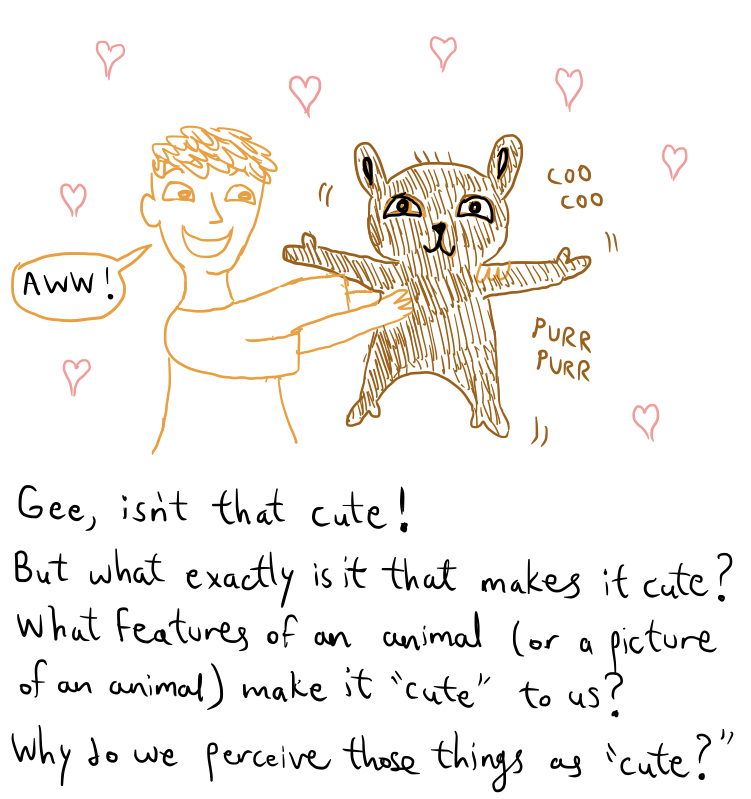 COO
COO
AWW!
PURR
PURR
Gee, isn't that cute!
But what exactly is it that makes it cute?
What features of an animal (or a picture
of an animal) make it "cute" to us?
Why do we perceive those things as "cute?"